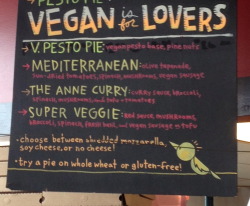 PESTO PIE
VEGAN is for LOVERS
V. PESTO PIE: vegan pesto base, pine nuts
MEDITERRANEAN: olive tapenade,
sun-dried tomatoes, spinach, mushrooms, vegan sausage
THE ANNE CURRY: curry sauce, broccoli,
spinach, mushrooms, tomatoes
SUPER VEGGIE: red sauce, mushrooms,
broccoli, spinach, fresh basil, and vegan sausage or tofu
• choose between shredded mozzarella,
soy cheese, or no cheese!
• try a pie on whole wheat or gluten-free!